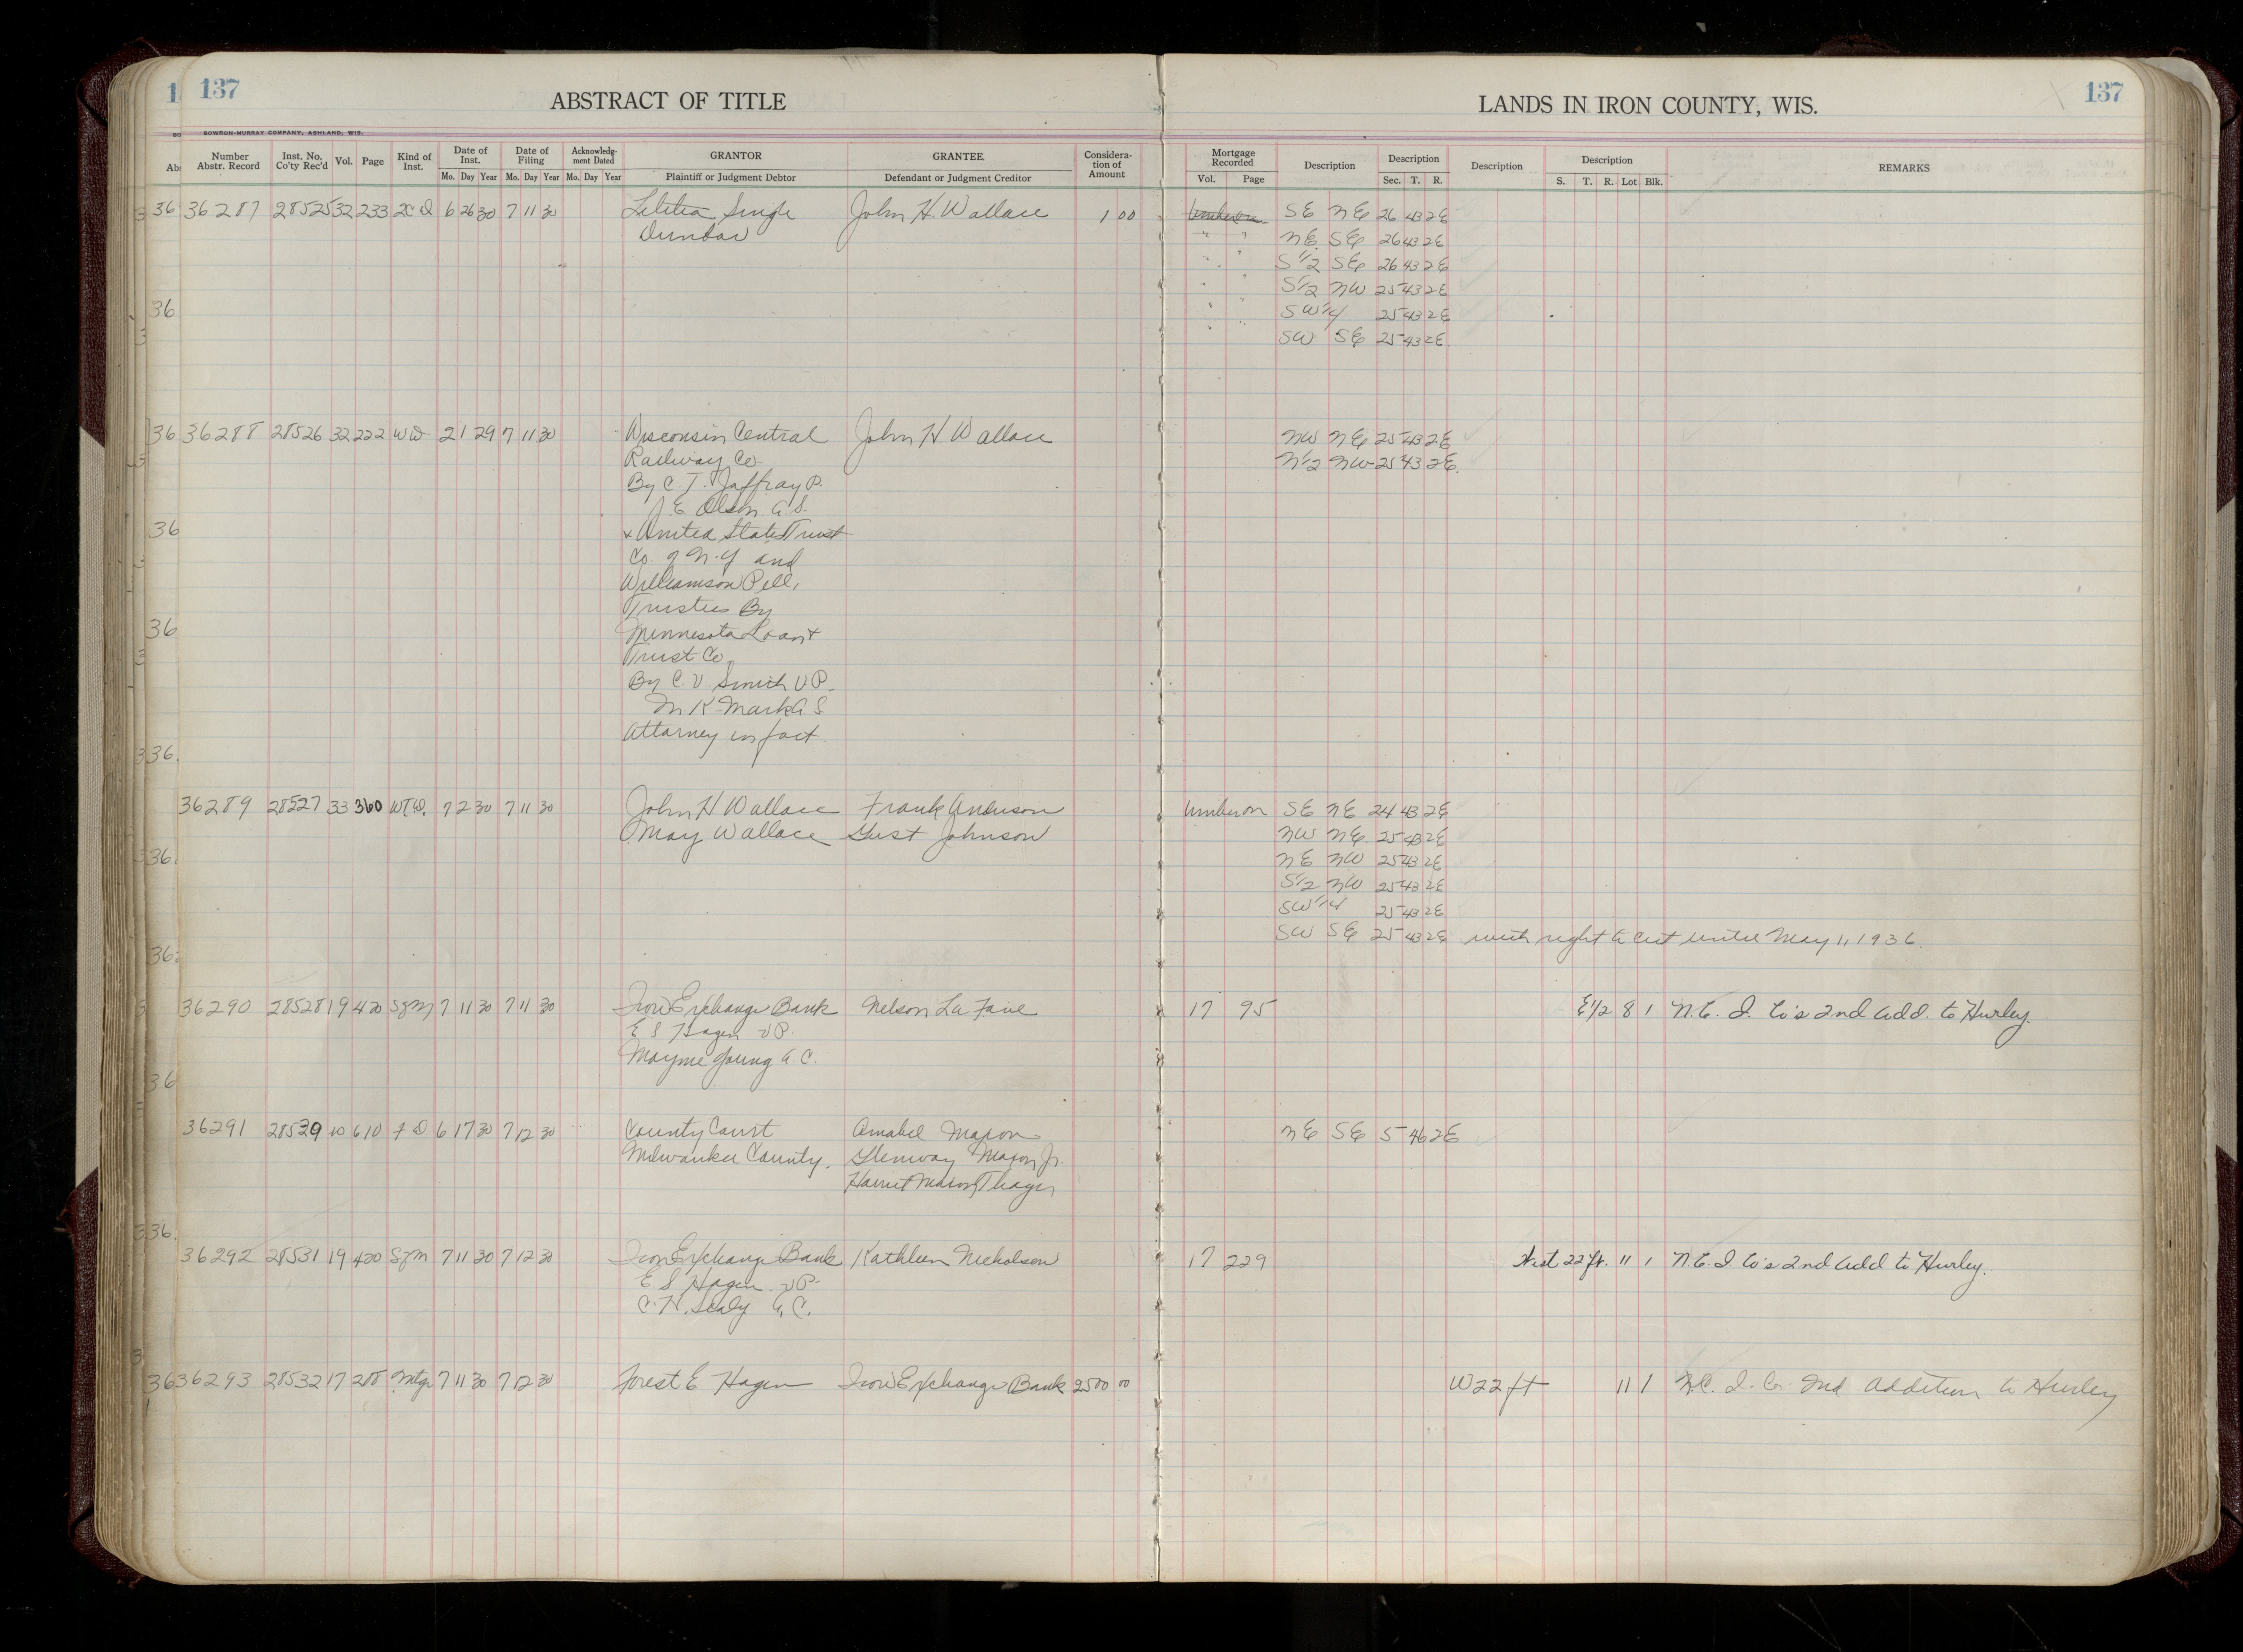 137
ABSTRACT OF TITLE
LANDS IN IRON COUNTY, WIS.
137
BOWRON-MURRAY COMPANY, ASHLAND, WIS.
Number Abstr. Record Inst. No. Co'ty Rec'd Vol. Page Kind of Inst. Date of Inst. Date of Filing Acknowledg-ment Dated GRANTOR GRANTEE Considera-tion of Amount Mortgage Recorded Description Description Description Description REMARKS
Mo. Day Year Mo. Day Year Mo. Day Year Plaintiff or Judgment Debtor Defendant or Judgment Creditor Vol. Page Sec. T. R. S. T. R. Lot Blk.
36287 28525 32 233 2C D 6 26 30 7 11 30 Letitia Single John H. Wallace 1 00 SE NE 26 43 2E
Dunbar " " NE SE 26 43 2E
" " S1/2 SE 26 43 2E
" " S1/2 NW 25 43 2E
" " SW1/4 25 43 2E
" " SW SE 25 43 2E
36288 28526 32 222 WD 2 1 29 7 11 30 Wisconsin Central John H Wallace NW NE 25 43 2E
Railway Co. N1/2 NW 25 43 2E
By C. T. Jaffray P.
J E Olson A. S.
+ United States Trust
Co of N.Y and
Williamson Pell,
Trustees By
Minnesota Loan +
Trust Co.
By C. V Smith V P.
M K Mark A S
Attorney in fact
36289 28527 33 360 7 2 30 7 11 30 John H Wallace Frank Anderson SE NE 24 43 2E
May Wallace Gust Johnson NW NE 25 43 2E
NE NW 25 43 2E
S1/2 NW 25 43 2E
SW1/4 25 43 2E
SW SE 25 43 2E with right to cut until May 1, 1936.
36290 28528 19 420 Sgm 7 11 30 7 11 30 Iron Exchange Bank Nelson La Fave 17 95 E1/2 8 1 N.C. I. Co's 2nd Add. to Hurley.
E S Hagen V P.
Mayme Young A. C.
36291 28529 10 610 F D 6 17 30 7 12 30 County Court Amabel Mason NE SE 5 46 2E
Milwaukee County. Glenway Maxon Jr.
Harriet Maxon Thayer
36292 28531 19 420 Sgm 7 11 30 7 12 30 Iron Exchange Bank Kathleen Nicholson 17 229 West 22 ft. 11 1 N.C. I Co's 2nd Add to Hurley.
E S Hagen V P.
C. H. Sealy A. C.
36293 28532 17 288 Mtg 7 11 30 7 12 30 Forest E Hagen Iron Exchange Bank 2500 00 W 22 ft 11 1 N.C. I. Co. 2nd Addition to Hurley